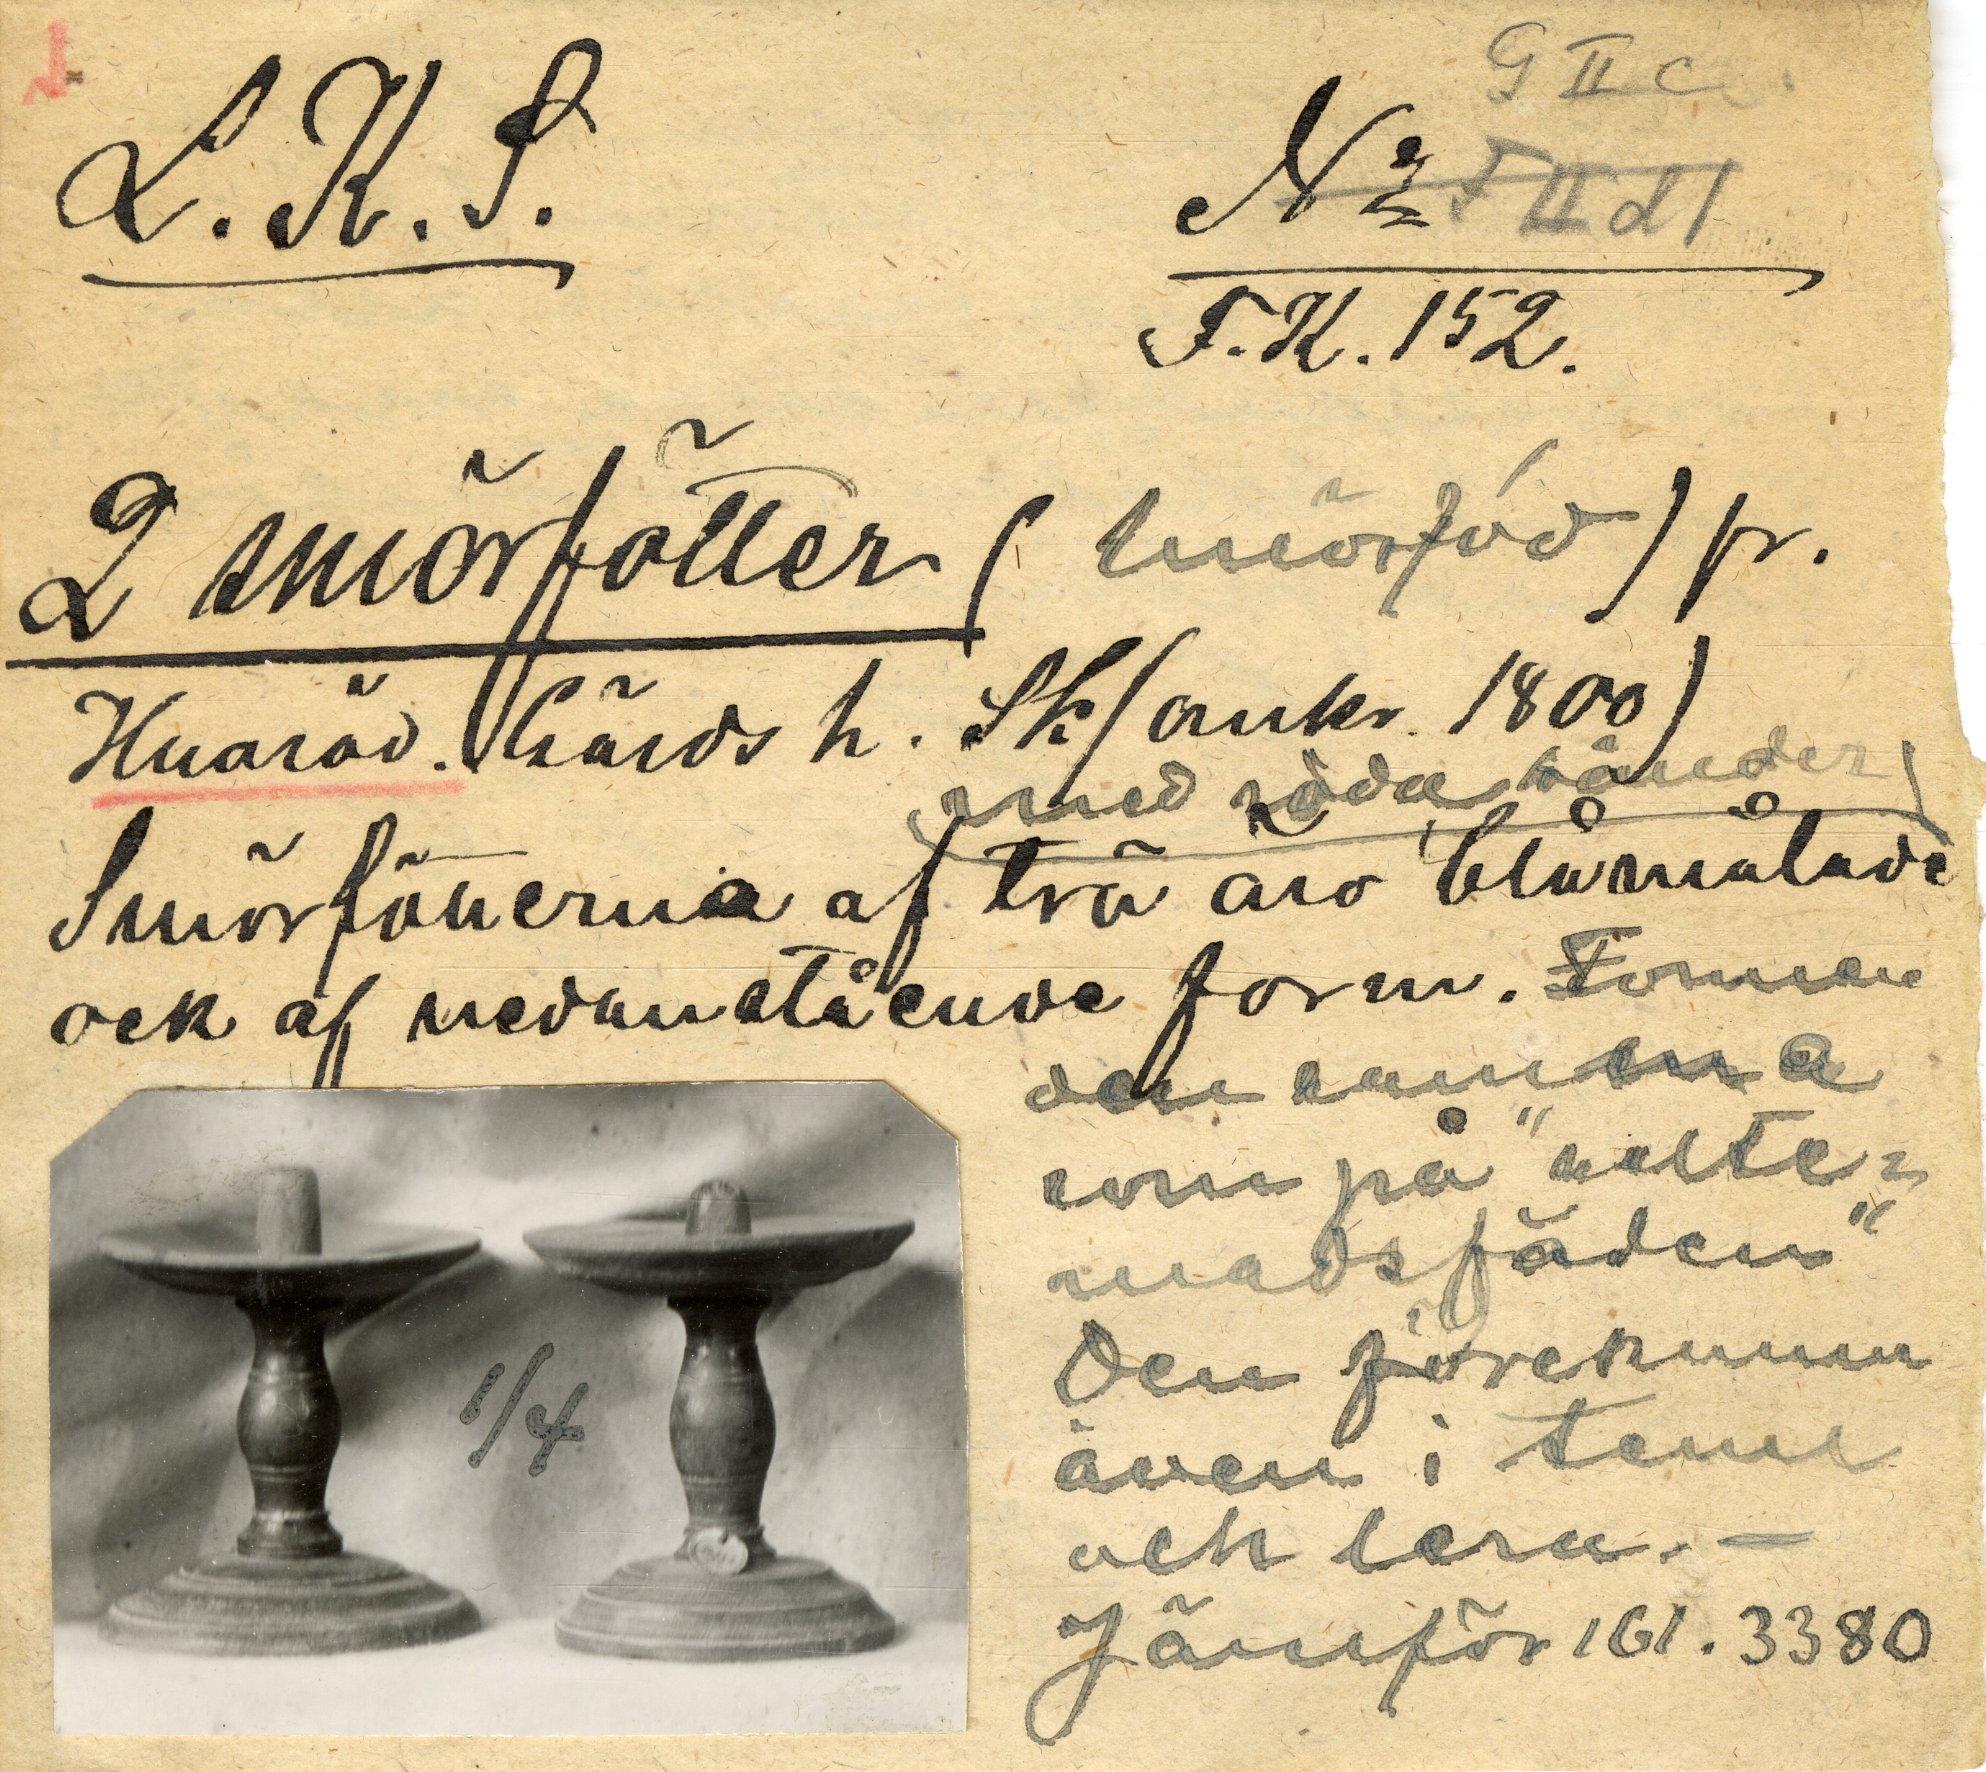 G II c.
L. K. S.
No F II d 1
F. K. 152.
2 smörfötter (smörfód) fr.
Huaröd. Gärds h. Sk (omkr. 1800)
(med röda ränder)
Smörfötterna af trä äro blåmålade
ock af nedanstående form. Formen
den samma
som på "salte-
madsfäden"
Den förekumm
även i tenn
och lera. –
Jämför 161. 3380
1/4